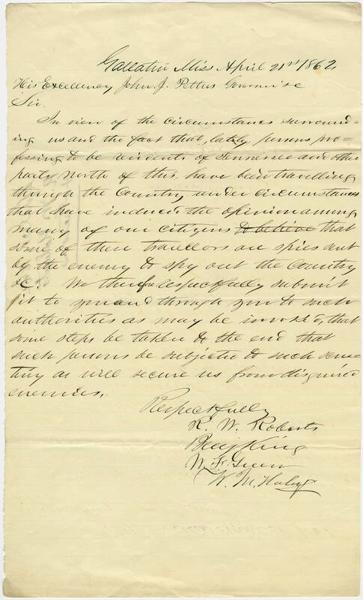 Gallatin Miss April 21st 1862
His Excellency John J. Pettus Governor &c
Sir.
In view of the circumstances surround-
ing us and the fact that, lately persons pro-
fessing to be residents of Tennessee and other
parts north of this, have been travelling
through the Country under circumstances
that have induced the opinion among
many of our citizens to believe that
some of these travellers are spies sent
by the enemy to spy out the Country
&c. We therefore respectfully submit
through you to such
authorities as may be that
some steps be taken to the end that
such persons be subjected to such scru-
tiny as will secure us from disguised
enemies.
Respectfully
R. W. Roberts
Benj King
W. F. Green
W. M. Haley